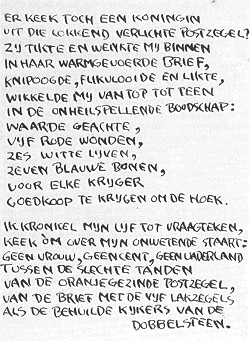 ER KEEK TOCH EEN KONINGIN
UIT DIE LOKKEND VERLICHTE POSTZEGEL?
ZIJ TIKTE EN WENKTE MIJ BINNEN
IN HAAR WARMGEVOERDE BRIEF,
KNIPOOGDE, FLIKVLOOIDE EN LIKTE,
WIKKELDE MIJ VAN TOP TOT TEEN
IN DE ONHEILSPELLENDE BOODSCHAP:
WAARDE GEACHTE,
VIJF RODE WONDEN,
ZES WITTE LIJVEN,
ZEVEN BLAUWE BONEN,
VOOR ELKE KRIJGER
GOEDKOOP TE KRIJGEN OM DE HOEK.
IK KRONKEL MIJN LIJF TOT VRAAGTEKEN,
KEEK OM OVER MIJN ONWETENDE STAART:
GEEN VROUW, GEEN CENT, GEEN VADERLAND
TUSSEN DE SLECHTE TANDEN
VAN DE ORANJEGEZINDE POSTZEGEL,
VAN DE BRIEF MET DE VIJF LAKZEGELS
ALS DE BEHUILDE KIJKERS VAN DE
DOBBELSTEEN.